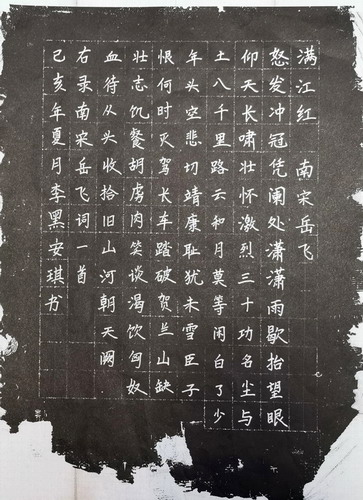 满江红 南宋岳飞
怒发冲冠凭阑处潇潇雨歇抬望眼
仰天长啸壮怀激烈三十功名尘与
土八千里路云和月莫等闲白了少
年头空悲切靖康耻犹未雪臣子
恨何时灭驾长车踏破贺兰山缺
壮志饥餐胡虏肉笑谈渴饮匈奴
血待从头收拾旧山河朝天阙
右录南宋岳飞词一首
己亥年夏月李黑安琪书